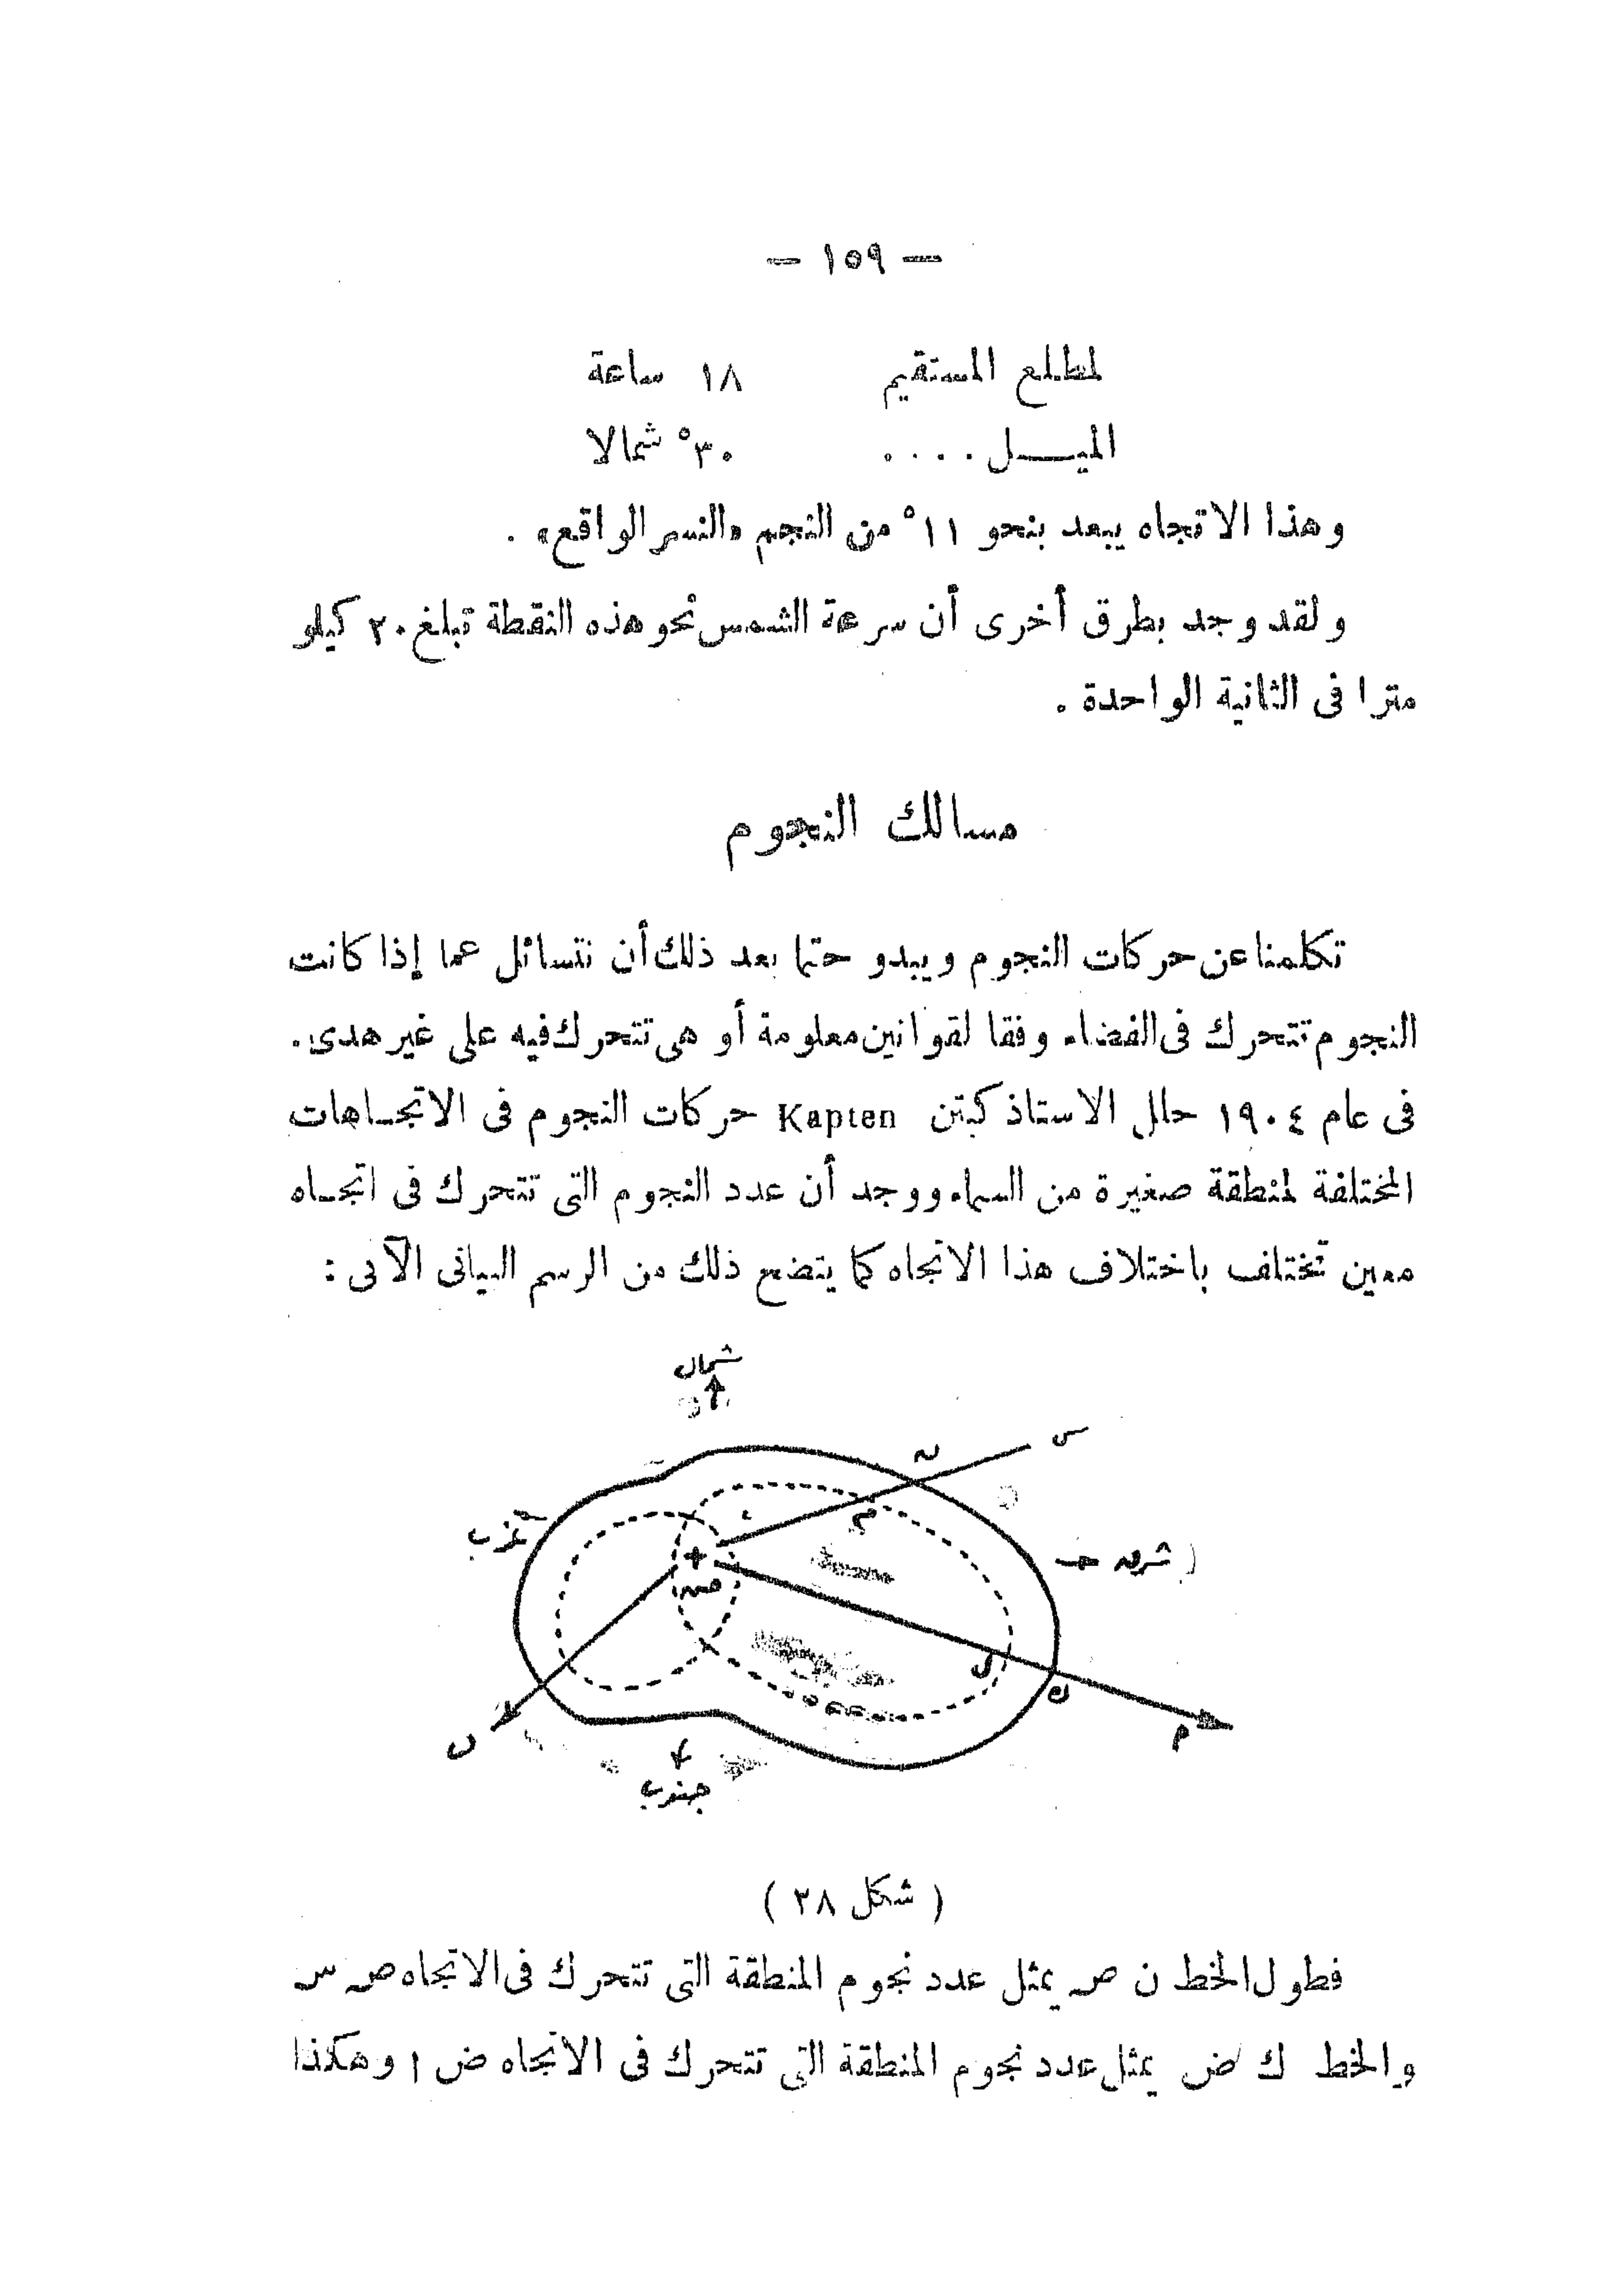 — ١٥٩ —
لمطلع المستقيم ١٨ ساعة
الميـــل . . . . ٣٠° شمالا
وهذا الاتجاه يبعد بنحو ١١° من النجم «النسر الواقع» .
ولقد وجد بطرق أخرى أن سرعة الشمس نحو هذه النقطة تبلغ ٢٠ كيلو
مترا فى الثانية الواحدة .
مسالك النجوم
تكلمنا عن حركات النجوم ويبدو حتما بعد ذلك أن نتسائل عما إذا كانت
النجوم تتحرك فى الفضاء وفقا لقوانين معلومة أو هى تتحرك فيه على غير هدى.
فى عام ١٩٠٤ حلل الاستاذ كبتن Kapten حركات النجوم فى الاتجـاهات
المختلفة لمنطقة صغيرة من السماء ووجد أن عدد النجوم التى تتحرك فى اتجـاه
معين تختلف باختلاف هذا الاتجاه كما يتضح ذلك من الرسم البيانى الآتى :
شمال
س
ن
م
غرب
شرق
ص
ل
ك
م
ب
جنوب
( شكل ٣٨ )
فطول الخط ن ص يمثل عدد نجوم المنطقة التى تتحرك فى الاتجاه ص س
والخط ك ض يمثل عدد نجوم المنطقة التى تتحرك فى الاتجاه ض ا وهكذا